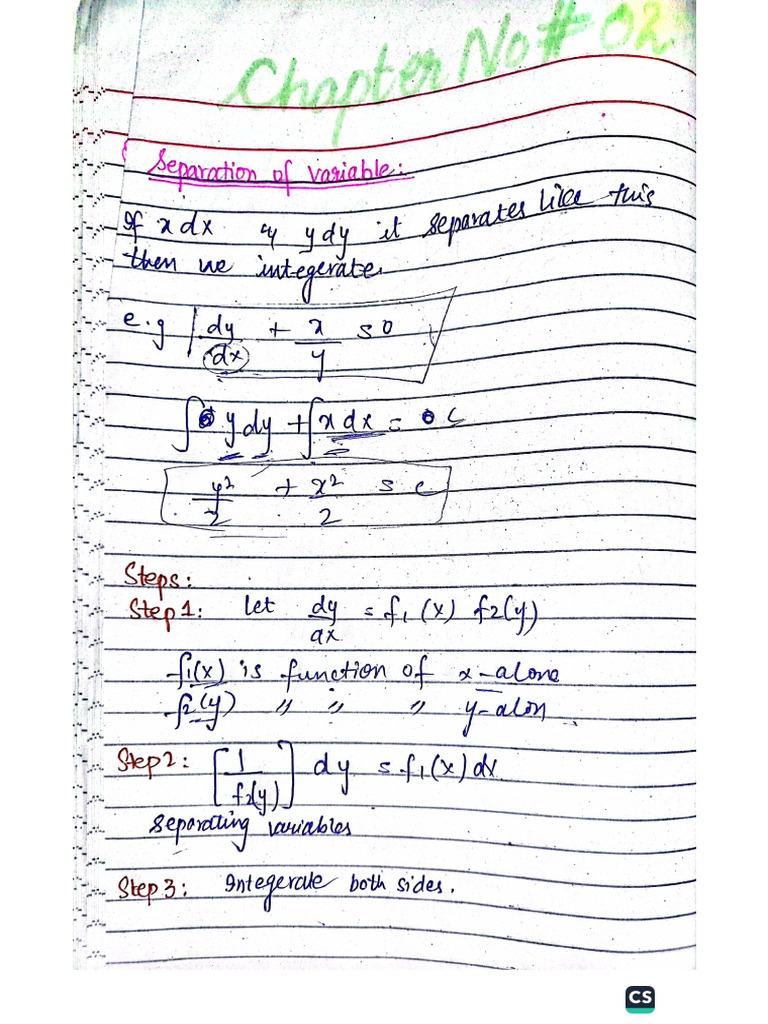 Chapter No# 02
Separation of variable:
If x dx y ydy it separates like this
then we integerate.
e.g dy/dx + x/y = 0
∫ y dy + ∫ x dx = C
y²/2 + x²/2 = c
Steps:
Step 1: let dy/dx = f₁(x) f₂(y)
f₁(x) is function of x-alone
f₂(y) " " " y-alon
Step 2: [1/f₂(y)] dy = f₁(x) dx
Separating variables
Step 3: Integerate both sides.
CS